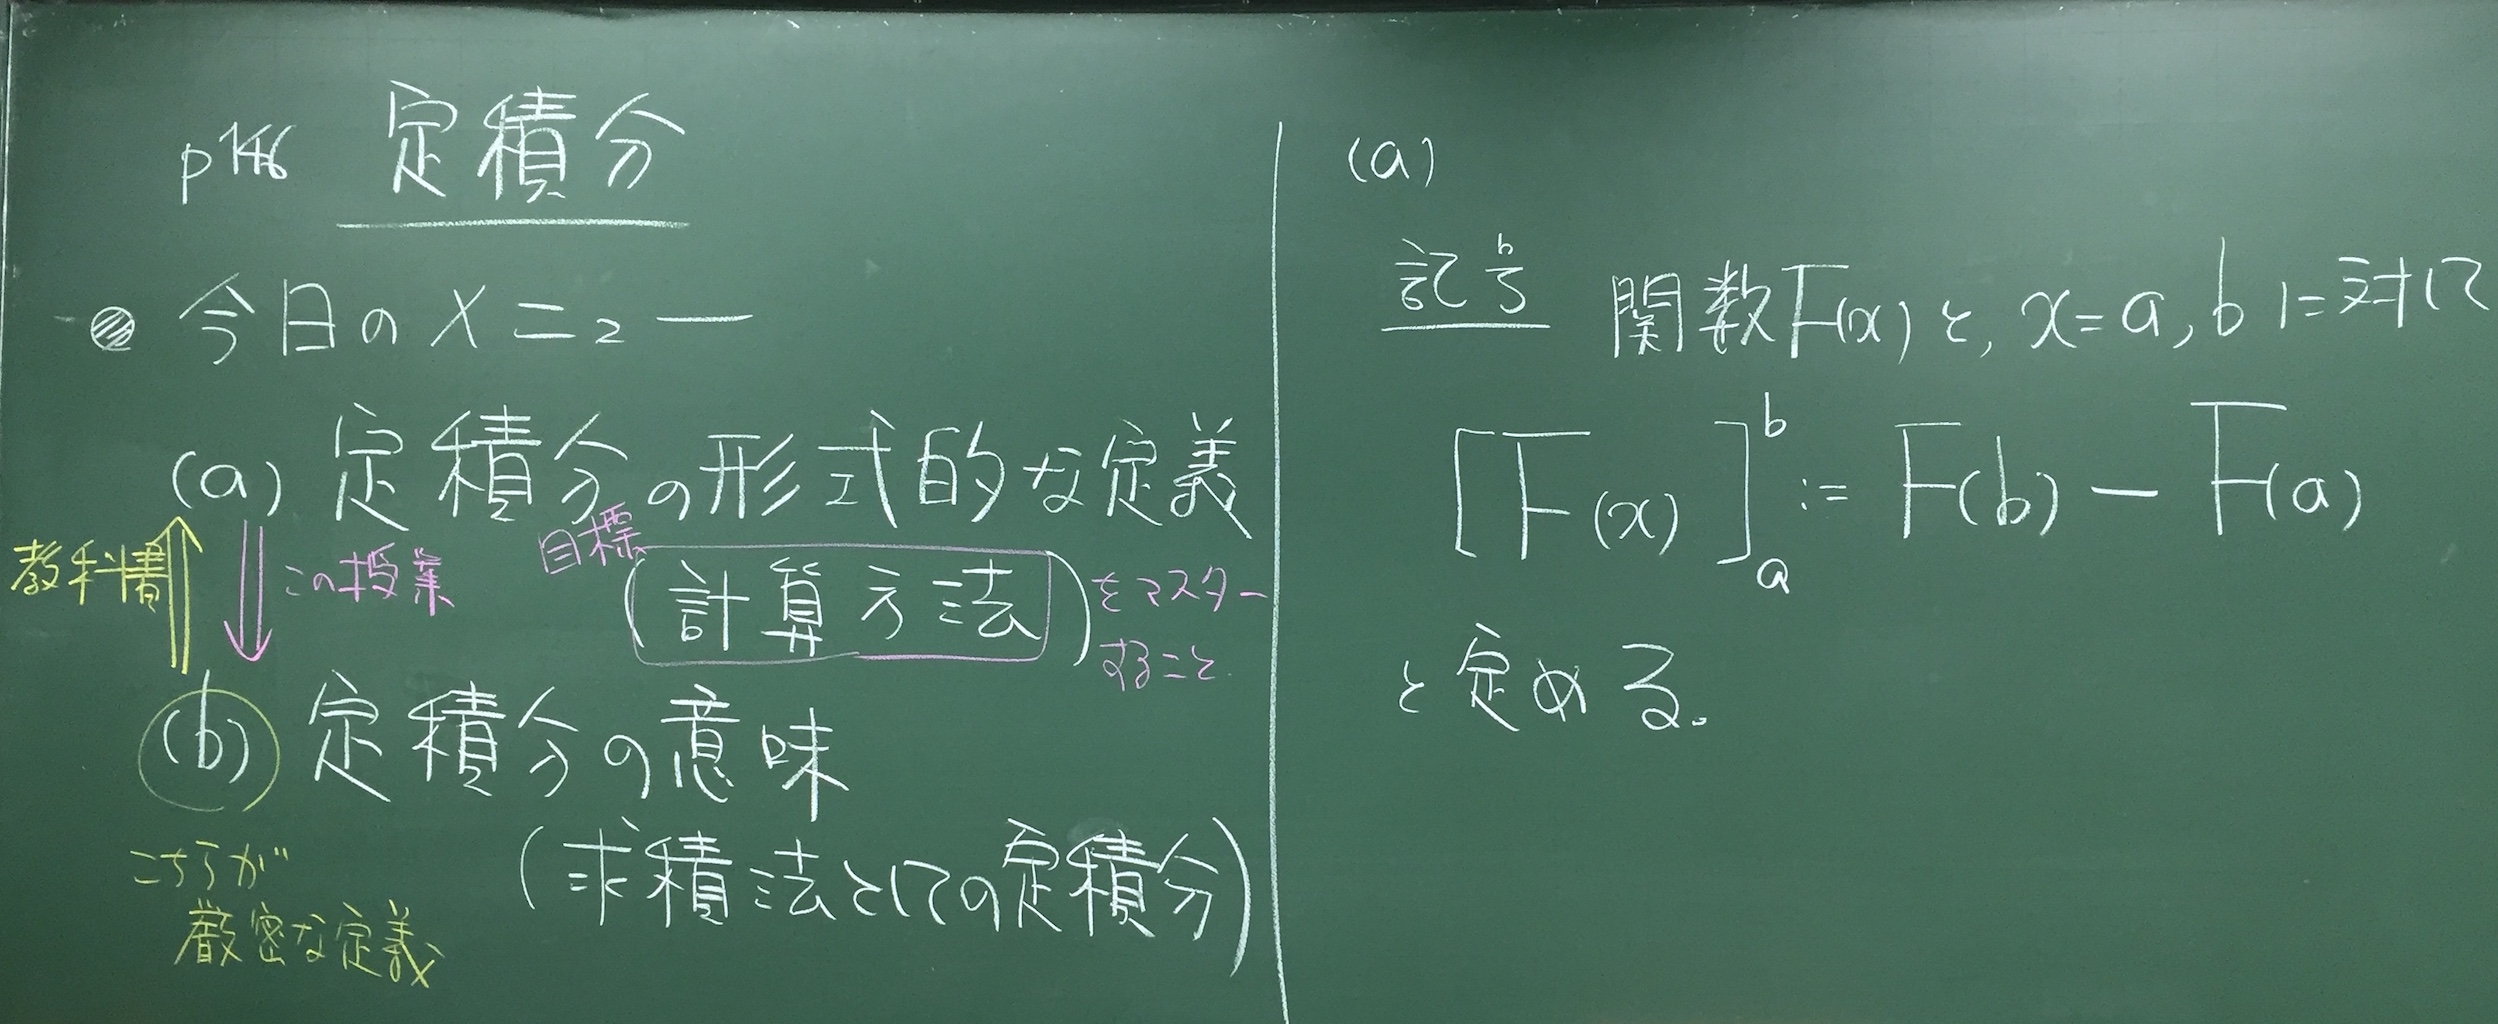 p146 定積分
今日のメニュー
(a) 定積分の形式的な定義
教科書
この授業
目標
(計算方法)
をマスター
すること.
(b) 定積分の意味
(求積法としての定積分)
こちらが
厳密な定義
(a)
記号 関数F(x)と, x=a, bに対して
[F(x)]_a^b := F(b) - F(a)
と定める。